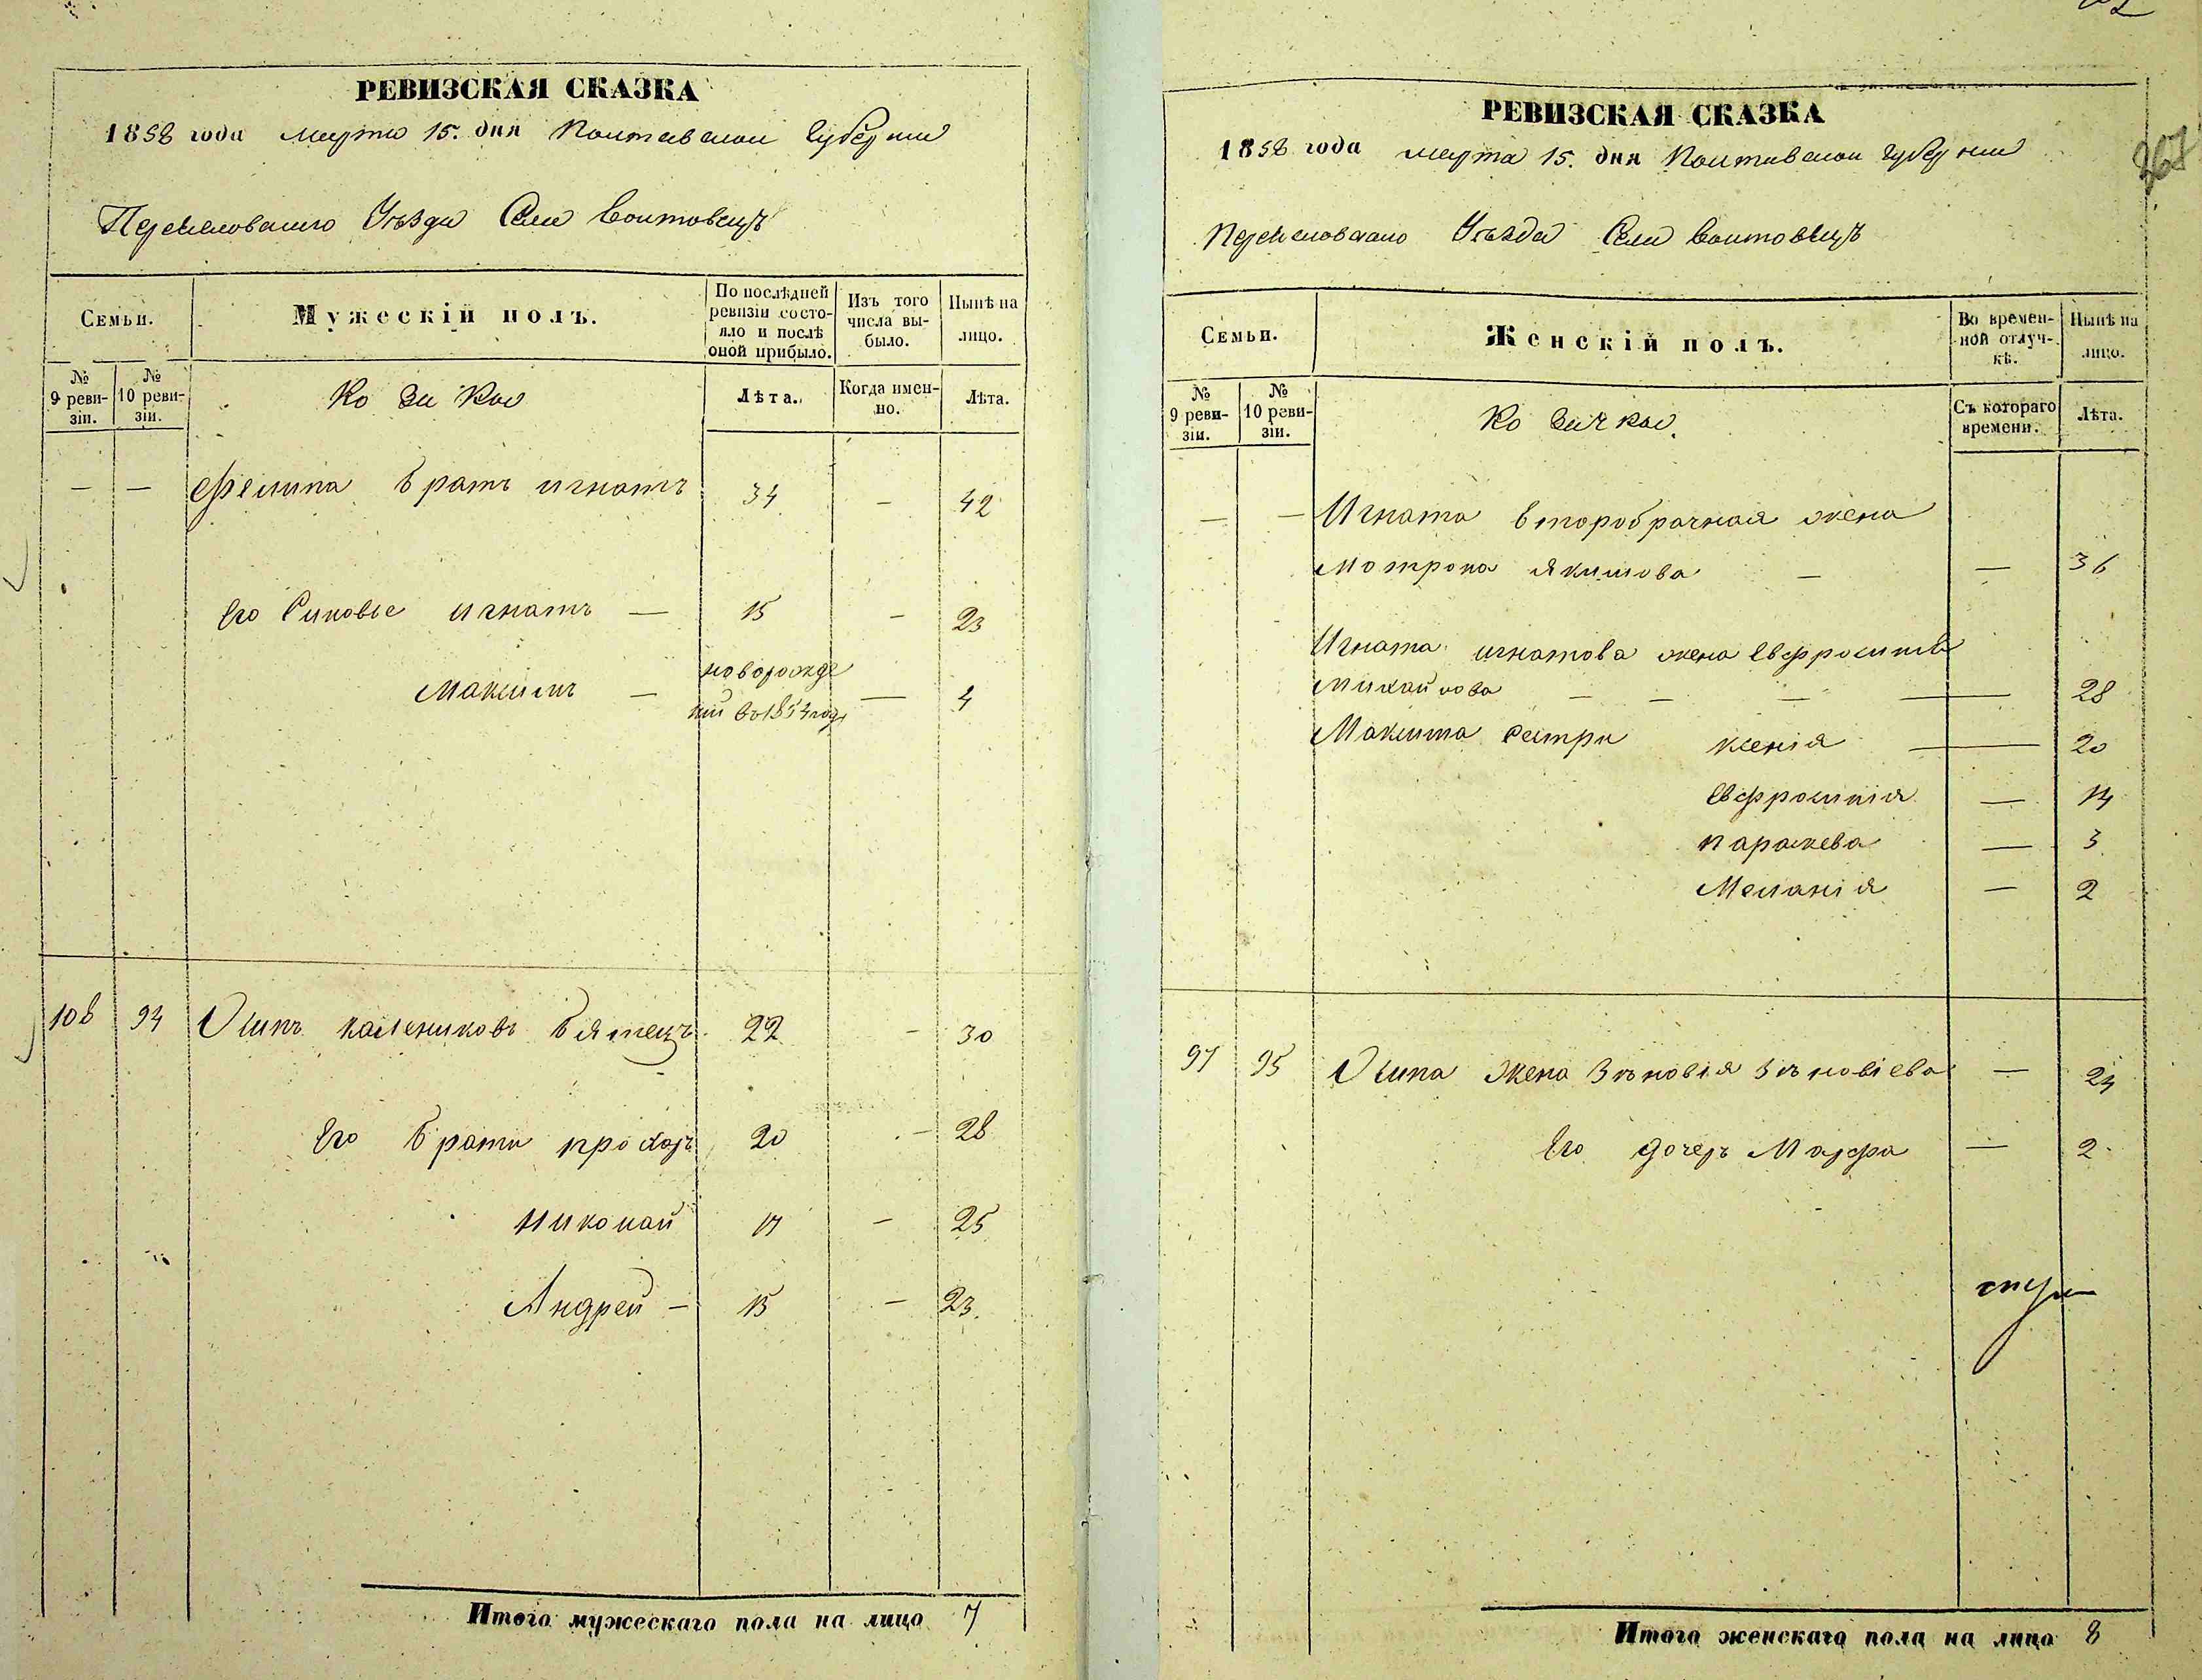 РЕВИЗСКАЯ СКАЗКА
1858 года марта 15. дня Полтавской Губерніи
Переяславского Уѣзда Села Войтовецъ
Семьи.
Мужескій полъ.
По послѣдней ревизіи состояло и послѣ оной прибыло.
Изъ того числа выбыло.
Нынѣ на лицо.
№ 9 ревизіи.
№ 10 ревизіи.
Козаки
Лѣта.
Когда именно.
Лѣта.
— — Филипа братъ игнатъ 34 — 42
Его Синовье игнатъ — 15 — 23
Максимъ — новорожде
ний во 1854 год. — 4
108 94 Осипъ калениковъ Бятецъ 22 — 30
Его брати прохоръ 20 — 28
Николай 17 — 25
Андрей — 15 — 23.
Итого мужескаго пола на лицо 7
367
РЕВИЗСКАЯ СКАЗКА
1858 года марта 15. дня Полтавской Губерніи
Переяславского Уѣзда Села Войтовецъ
Семьи.
Женскій полъ.
Во временной отлучкѣ.
Нынѣ на лицо.
№ 9 ревизіи.
№ 10 ревизіи.
Козачки.
Съ котораго времени.
Лѣта.
— — Игната второбрачная жена
Мотрона Якимова — — 36
Игната игнатова жена Евфросинія
Михайлова — — — — 28
Максима сестри ксенія — 20
Евфросинія — 14
параскева — 3
Меланія — 2
97 95 Осипа Жена Зѣновія Зѣновіева — 24
Его дочеръ Марфа — 2.
Итого женскаго пола на лицо 8